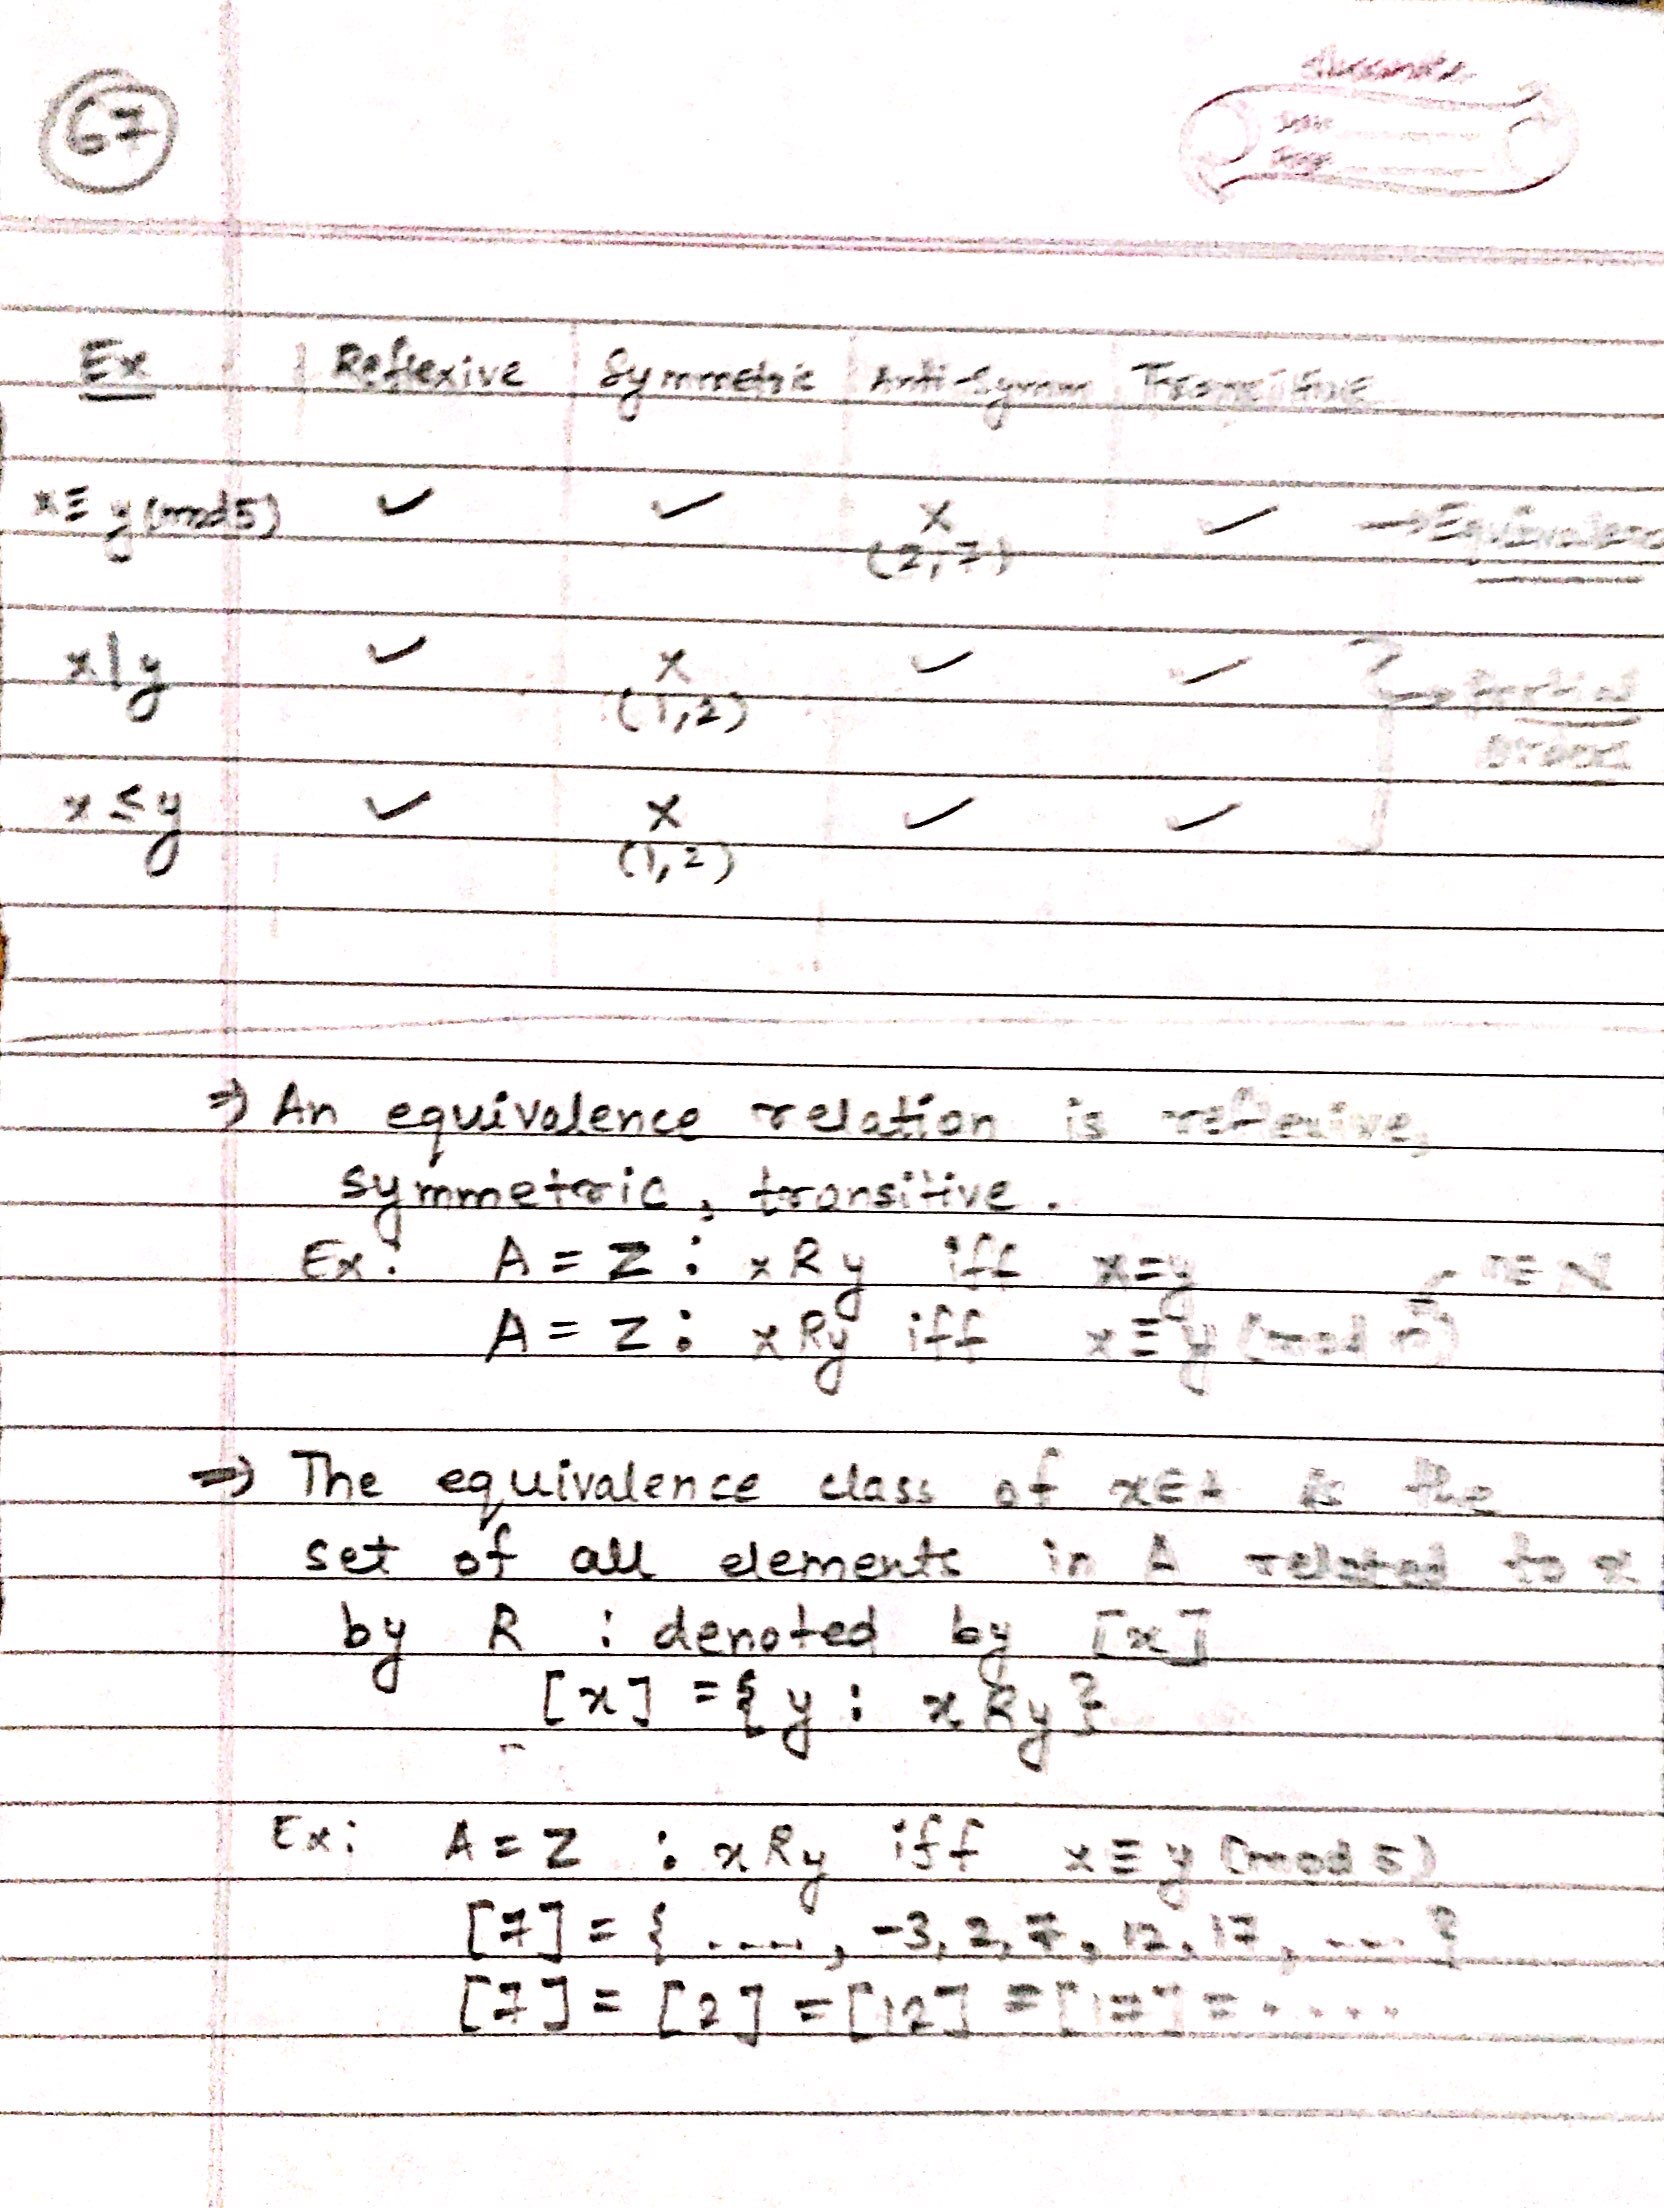 67
Date
Page
Ex Reflexive Symmetric Anti-Symm Transitive
x ≡ y (mod 5) ✓ ✓ x ✓ →Equivalence
(2,7)
x|y ✓ x ✓ ✓ → Partial
(1,2) order
x ≤ y ✓ x ✓ ✓
(1,2)
⇒ An equivalence relation is reflexive,
symmetric, transitive.
Ex: A = Z : x R y iff x=y
n ∈ N
A = Z : x Ry iff x ≡ y (mod n)
⇒ The equivalence class of x∈A is the
set of all elements in A related to x
by R : denoted by [x]
[x] = {y : x Ry}
Ex: A = Z : x Ry iff x ≡ y (mod 5)
[7] = { ...., -3, 2, 7, 12, 17, .... }
[7] = [2] = [12] = [17] = .....